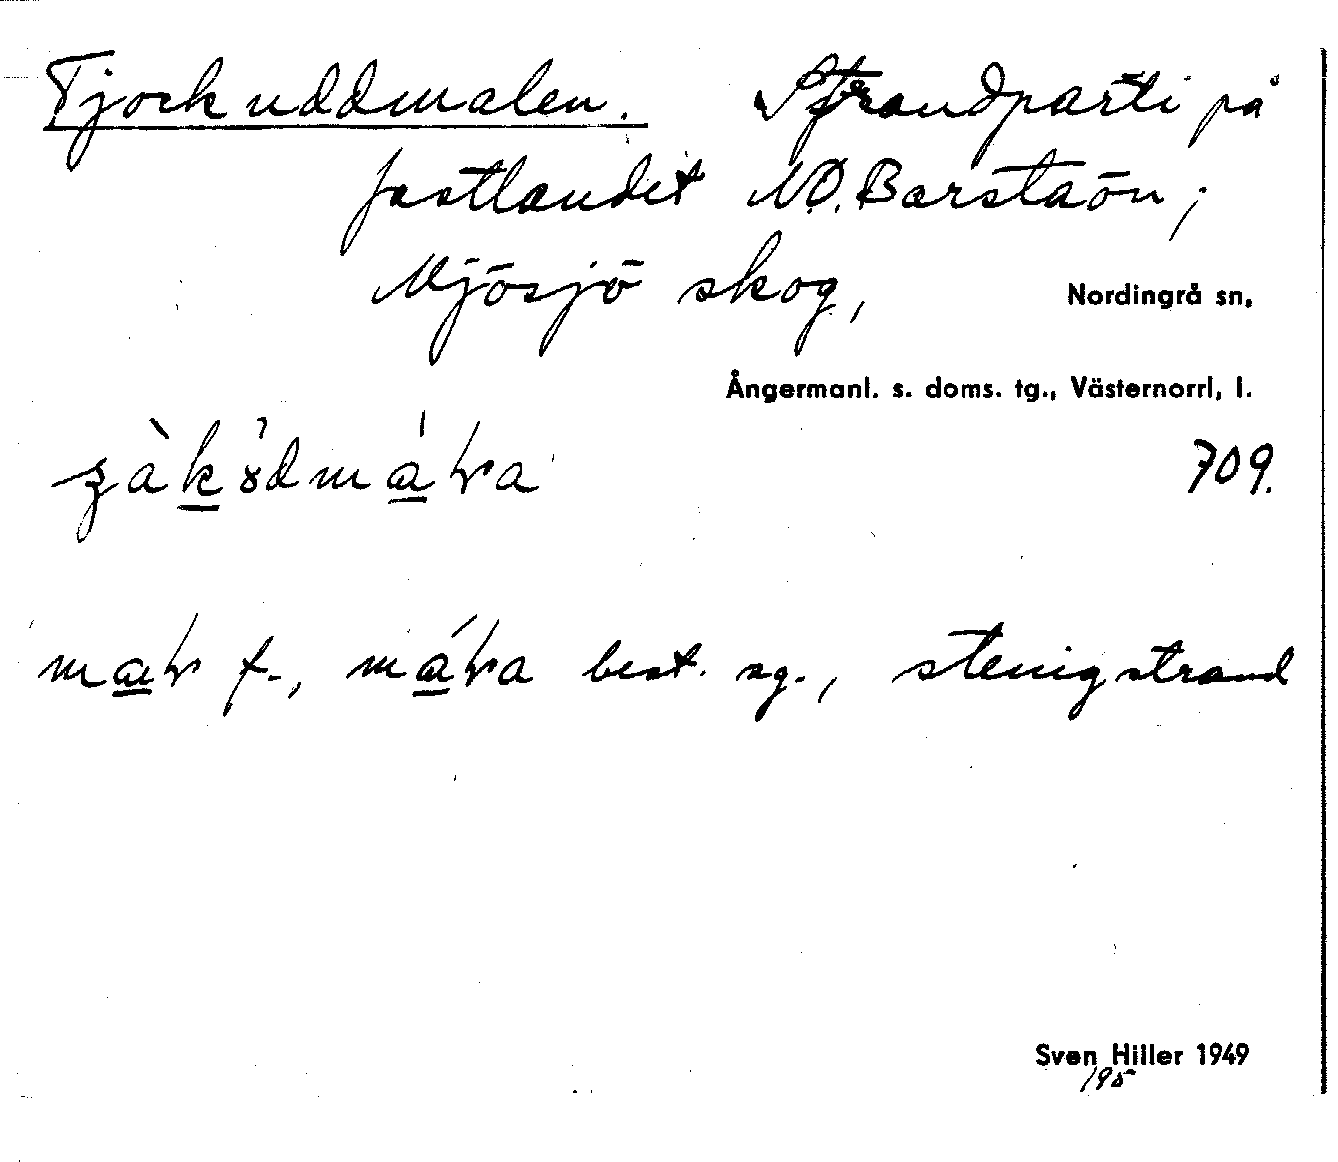 Tjockuddmalen. Strandparti på
fastlandet NO. Barstaön;
Mjösjö skog, Nordingrå sn,
Ångermanl. s. doms. tg., Västernorrl, l.
709.
f., best. sg., stenig strand
Sven Hiller 1949
195